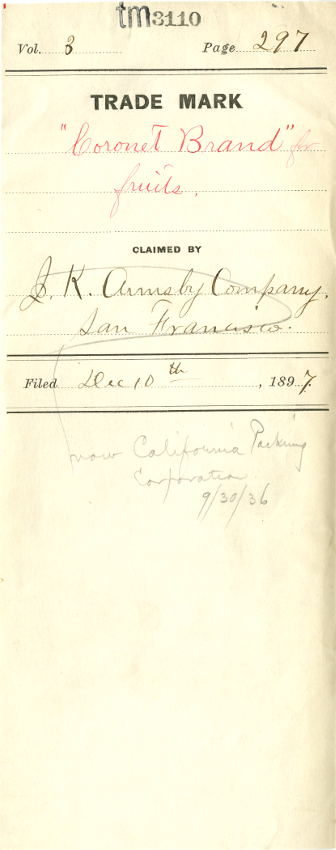 tm3110
Vol. 3 Page 297
TRADE MARK
"Coronet Brand" for
fruits.
CLAIMED BY
J. K. Armsby Company,
San Francisco.
Filed Dec 10th, 1897.
now California Packing
Corporation
9/30/36